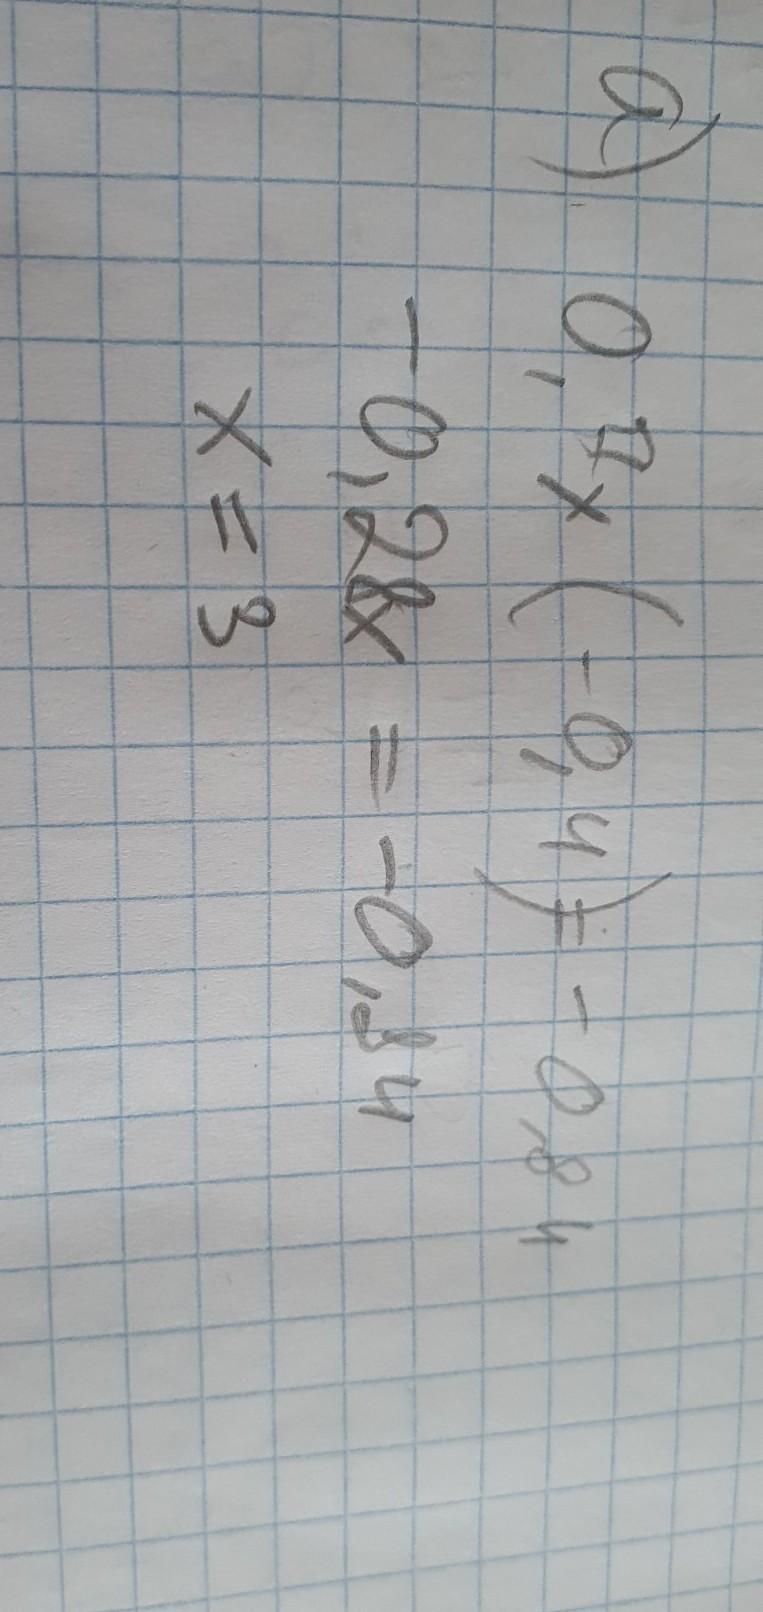 а) 0,7x (-0,4) = -0,84
-0,28x = -0,84
x = 3